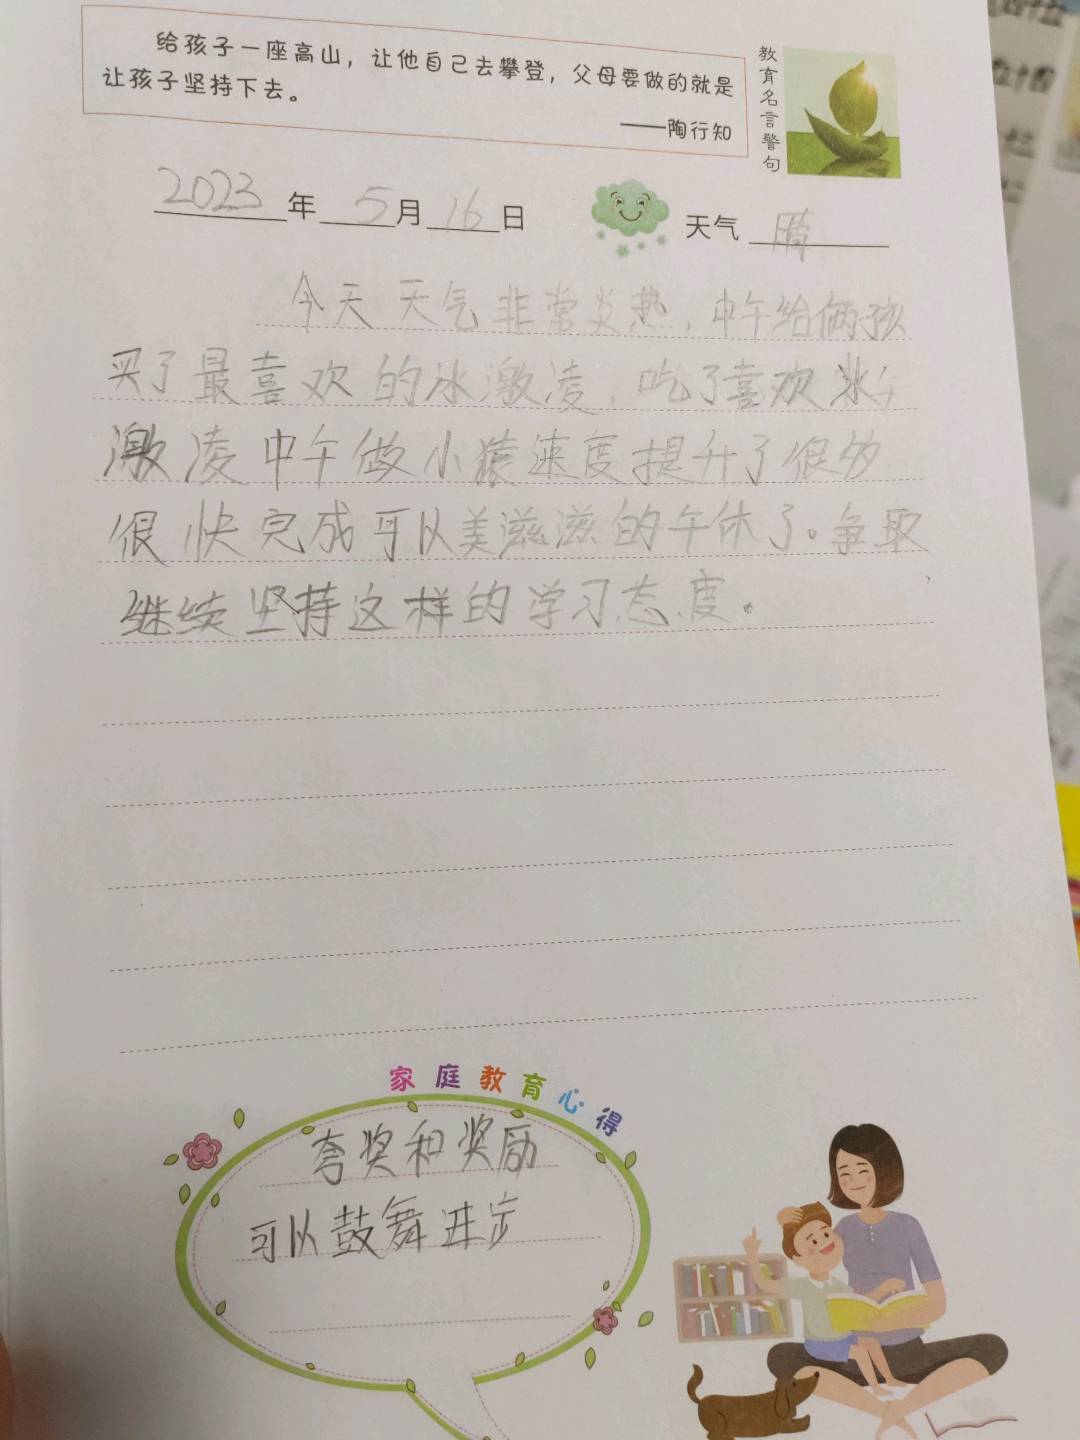 给孩子一座高山，让他自己去攀登，父母要做的就是
让孩子坚持下去。
——陶行知
教育名言警句
2023年5月16日 天气 晴
今天天气非常炎热，中午给俩孩
买了最喜欢的冰激凌，吃了喜欢冰
激凌中午做小猿速度提升了很多
很快完成可以美滋滋的午休了。争取
继续坚持这样的学习态度。
家庭教育心得
夸奖和奖励
可以鼓舞进步